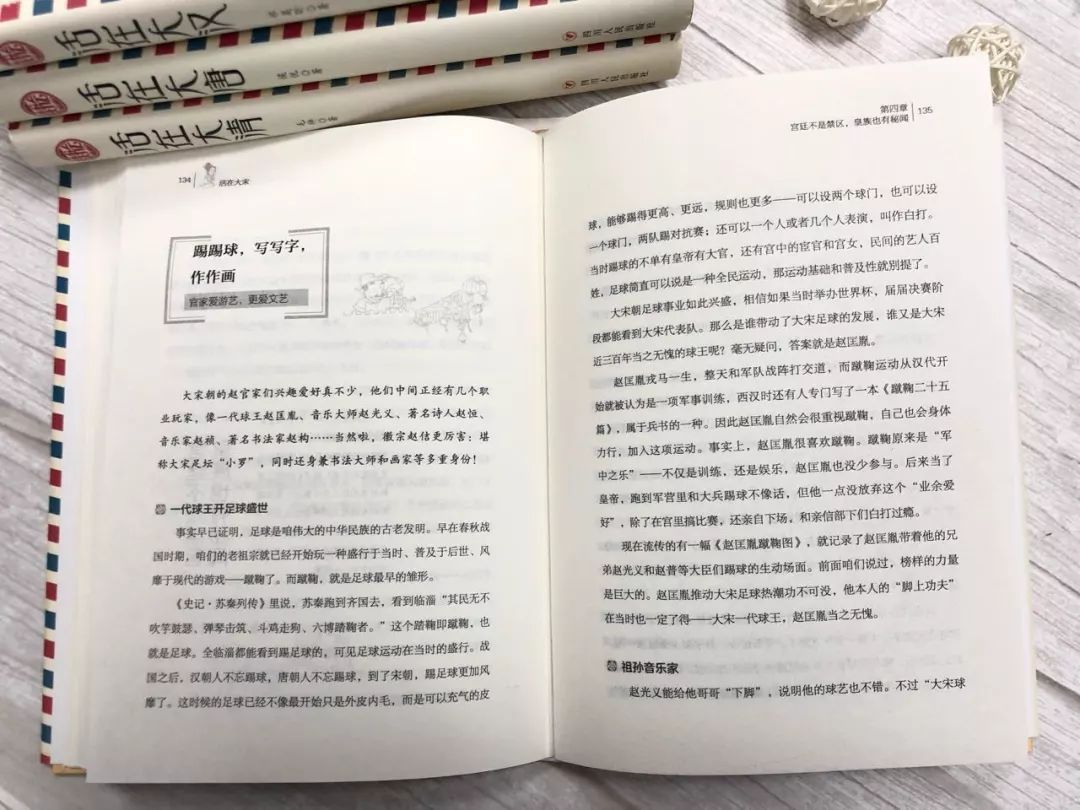 活在大汉
活在大唐
四川人民出版社
活在大清
四川人民出版社
134
活在大宋
踢踢球，写写字，
作作画
官家爱游艺，更爱文艺
大宋朝的赵官家们兴趣爱好真不少，他们中间正经有几个职
业玩家，像一代球王赵匡胤、音乐大师赵光义、著名诗人赵恒、
音乐家赵祯、著名书法家赵构……当然啦，徽宗赵佶更厉害：堪
称大宋足坛“小罗”，同时还身兼书法大师和画家等多重身份！
一代球王开足球盛世
事实早已证明，足球是咱伟大的中华民族的古老发明。早在春秋战
国时期，咱们的老祖宗就已经开始玩一种盛行于当时、普及于后世、风
靡于现代的游戏——蹴鞠了。而蹴鞠，就是足球最早的雏形。
《史记·苏秦列传》里说，苏秦跑到齐国去，看到临淄“其民无不
吹竽鼓瑟、弹琴击筑、斗鸡走狗、六博蹋鞠者。”这个蹋鞠即蹴鞠，也
就是足球。全临淄都能看到踢足球的，可见足球运动在当时的盛行。战
国之后，汉朝人不忘踢球，唐朝人不忘踢球，到了宋朝，踢足球更加风
靡了。这时候的足球已经不像最开始只是外皮内毛，而是可以充气的皮
第四章
宫廷不是禁区，皇族也有秘闻
135
球，能够踢得更高、更远，规则也更多——可以设两个球门，也可以设
一个球门，两队踢对抗赛；还可以一个人或者几个人表演，叫作白打。
当时踢球的不单有皇帝有大官，还有宫中的宦官和宫女，民间的艺人百
姓，足球简直可以说是一种全民运动，那运动基础和普及性就别提了。
大宋朝足球事业如此兴盛，相信如果当时举办世界杯，届届决赛阶
段都能看到大宋代表队。那么是谁带动了大宋足球的发展，谁又是大宋
近三百年当之无愧的球王呢？毫无疑问，答案就是赵匡胤。
赵匡胤戎马一生，整天和军队战阵打交道，而蹴鞠运动从汉代开
始就被认为是一项军事训练，西汉时还有人专门写了一本《蹴鞠二十五
篇》，属于兵书的一种。因此赵匡胤自然会很重视蹴鞠，自己也会身体
力行，加入这项运动。事实上，赵匡胤很喜欢蹴鞠。蹴鞠原来是“军
中之乐”——不仅是训练，还是娱乐，赵匡胤也没少参与。后来当了
皇帝，跑到军营里和大兵踢球不像话，但他一点没放弃这个“业余爱
好”，除了在宫里搞比赛，还亲自下场，和亲信部下们白打过瘾。
现在流传的有一幅《赵匡胤蹴鞠图》，就记录了赵匡胤带着他的兄
弟赵光义和赵普等大臣们踢球的生动场面。前面咱们说过，榜样的力量
是巨大的。赵匡胤推动大宋足球热潮功不可没，他本人的“脚上功夫”
在当时也一定了得——大宋一代球王，赵匡胤当之无愧。
祖孙音乐家
赵光义能给他哥哥“下脚”，说明他的球艺也不错。不过“大宋球